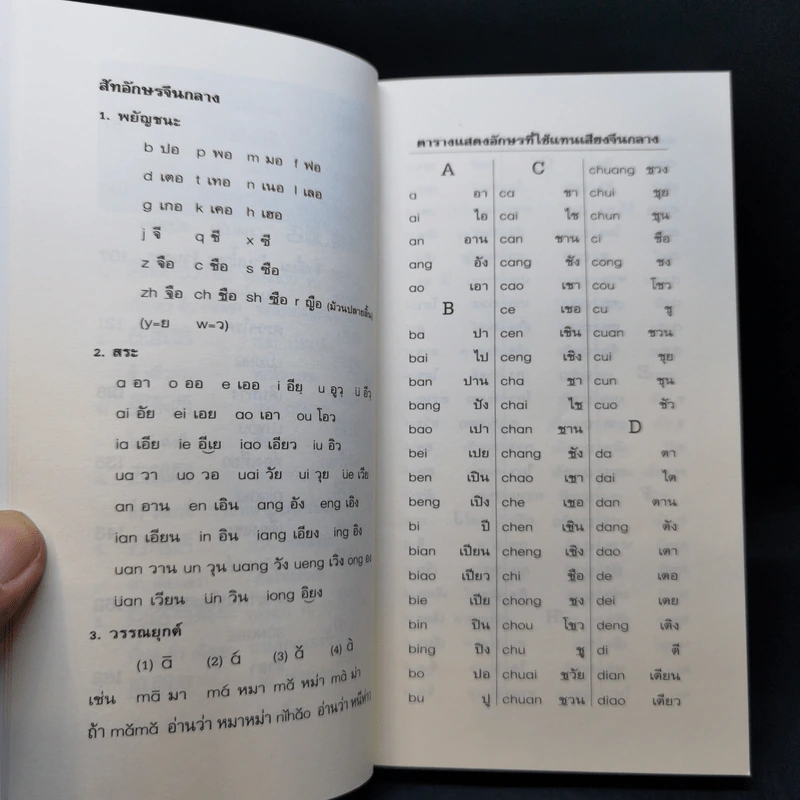 สัทอักษรจีนกลาง
1. พยัญชนะ
b ปอ p พอ m มอ f ฟอ
d เตอ t เทอ n เนอ l เลอ
g เกอ k เคอ h เฮอ
j จี q ชี x ซี
z จือ c ชือ s ซือ
zh จือ ch ชือ sh ซือ r ญือ (ม้วนปลายลิ้น)
(y=ย w=ว)
2. สระ
a อา o ออ e เออ i อียฺ u อูวฺ ü อีวฺ
ai อัย ei เอย ao เอา ou โอว
ia เอีย ie อีเย iao เอียว iu อิว
ua วา uo วอ uai วัย ui วุย üe เวีย
an อาน en เอิน ang อัง eng เอิง
ian เอียน in อิน iang เอียง ing อิง
uan วาน un วุน uang วัง ueng เวิง ong อง
üan เวียน ün วิน iong อิยง
3. วรรณยุกต์
(1) ā (2) á (3) ǎ (4) à
เช่น mā มา má หมา mǎ หม่า mà ม่า
ถ้า mǎmǎ อ่านว่า หมาหม่า nǐhǎo อ่านว่า หนีห่าว
ตารางแสดงอักษรที่ใช้แทนเสียงจีนกลาง
A
a อา
ai ไอ
an อาน
ang อัง
ao เอา
B
ba ปา
bai ไป
ban ปาน
bang ปัง
bao เปา
bei เปย
ben เปิน
beng เปิง
bi ปี
bian เปียน
biao เปียว
bie เปีย
bin ปิน
bing ปิง
bo ปอ
bu ปู
C
ca ชา
cai ไช
can ชาน
cang ชัง
cao เชา
ce เชอ
cen เชิน
ceng เชิง
cha ชา
chai ไช
chan ชาน
chang ชัง
chao เชา
che เชอ
chen เชิน
cheng เชิง
chi ชือ
chong ชง
chou โชว
chu ชู
chuai ชวัย
chuan ชวน
chuang ชวง
chui ชุย
chun ชุน
ci ชือ
cong ชง
cou โชว
cu ชู
cuan ชวน
cui ชุย
cun ชุน
cuo ชัว
D
da ตา
dai ไต
dan ตาน
dang ตัง
dao เตา
de เตอ
dei เตย
deng เติง
di ตี
dian เตียน
diao เตียว